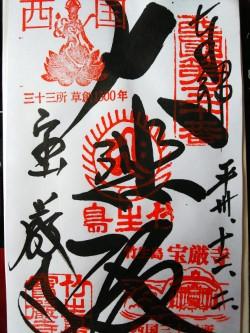 奉拝
西国第三十番
大悲殿
西国
三十三所 草創1300年
竹生島
竹生島 宝厳寺
宝厳寺